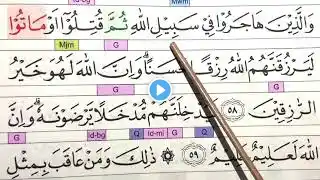 id-bg Mwm
وَالَّذِيْنَ هَاجَرُوْا فِيْ سَبِيْلِ اللّٰهِ ثُمَّ قُتِلُوْٓا اَوْ مَاتُوْا
Mjrn G G
لَيَرْزُقَنَّهُمُ اللّٰهُ رِزْقًا حَسَنًاۗ وَاِنَّ اللّٰهَ لَهُوَ خَيْرُ
G G G
الرّٰزِقِيْنَ ٥٨ خِلَنَّهُمْ مُّدْخَلًا يَّرْضَوْنَهٗۗ وَاِنَّ
G id-bg Q id-mi G Q G
اللّٰهَ لَعَلِيْمٌ حَلِيْمٌ ٥٩ ذٰلِكَ وَمَنْ عَاقَبَ بِمِثْلِ